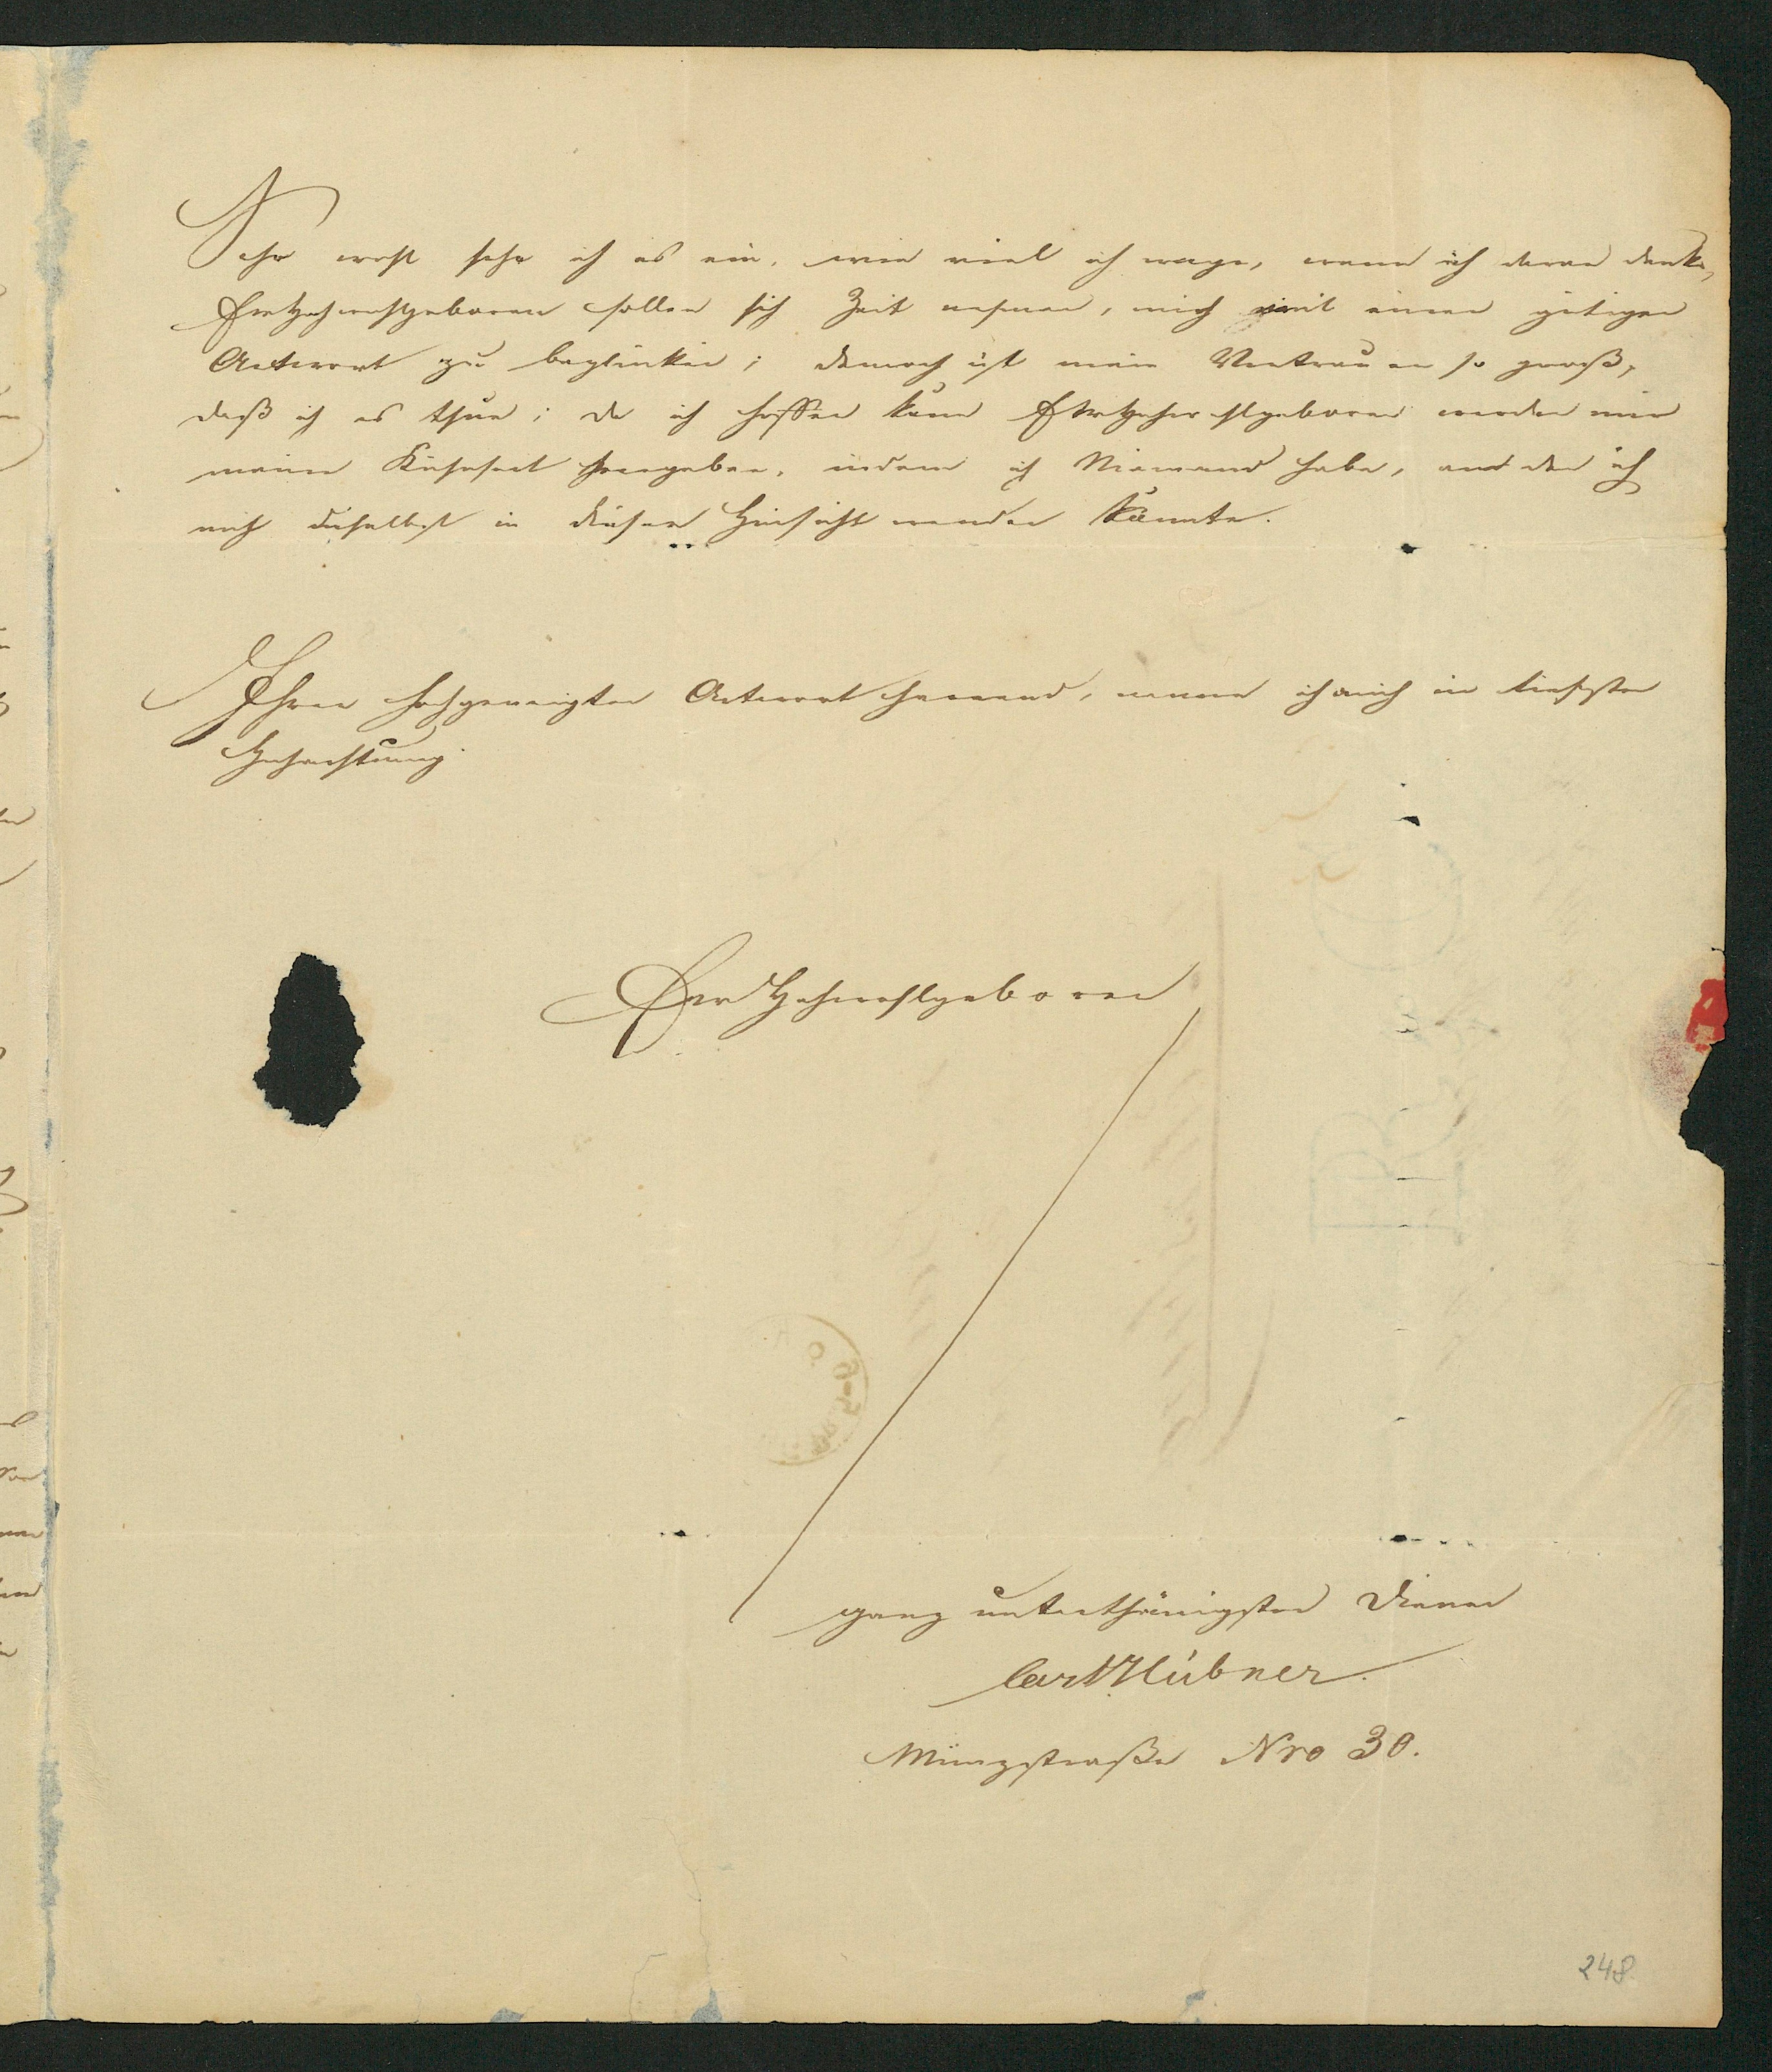 Sehr wohl sehe ich es ein, wie viel ich wage, wenn ich daran denke,
Ew Hochwohlgeboren sollen sich Zeit nehmen, mich mit einer gütigen
Antwort zu beglücken; dennoch ist mein Vertrauen so groß,
daß ich es thue; da ich hoffen kann Ew Hochwohlgeboren werden mir
meine Kühnheit vergeben, indem ich Niemand habe, an den ich
mich daselbst in dieser Hinsicht wenden könnte.
Ihrer hochgeneigten Antwort harrend, nenne ich mich in tiefster
Hochachtung
Ew Hochwohlgeboren
ganz unterthänigster Diener
Carl Hübner.
Münzstraße Nro 30.
248